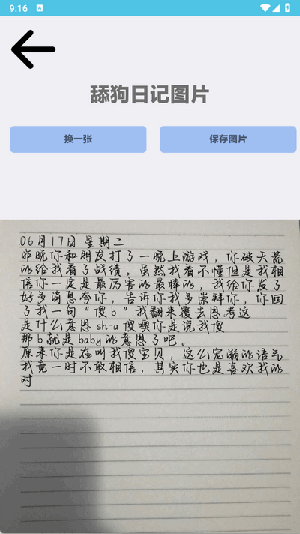 9.16
舔狗日记图片
换一张
保存图片
06月17日星期二
昨晚你和朋友打了一晚上游戏，你破天荒
的给我看了战绩，虽然我看不懂但是我相
信你一定是最厉害的最棒的，我给你发了
好多消息夸你，告诉你我多崇拜你，你回
了我一句“傻b”我翻来覆去思考这
是什么意思sha傻噢你是说我傻
那b就是baby的意思了吧。
原来你是在叫我傻宝贝，这么宠溺的语气
我竟一时不敢相信，其实你也是喜欢我的
对